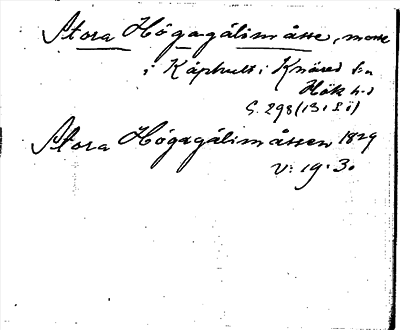 Stora Högagålimåsse, mosse
i Kåphult i Knäred s:n
Höks h-d
G. 298 (13 1 S ö)
Stora Högagålimåssen 1829
V: 19. 3.